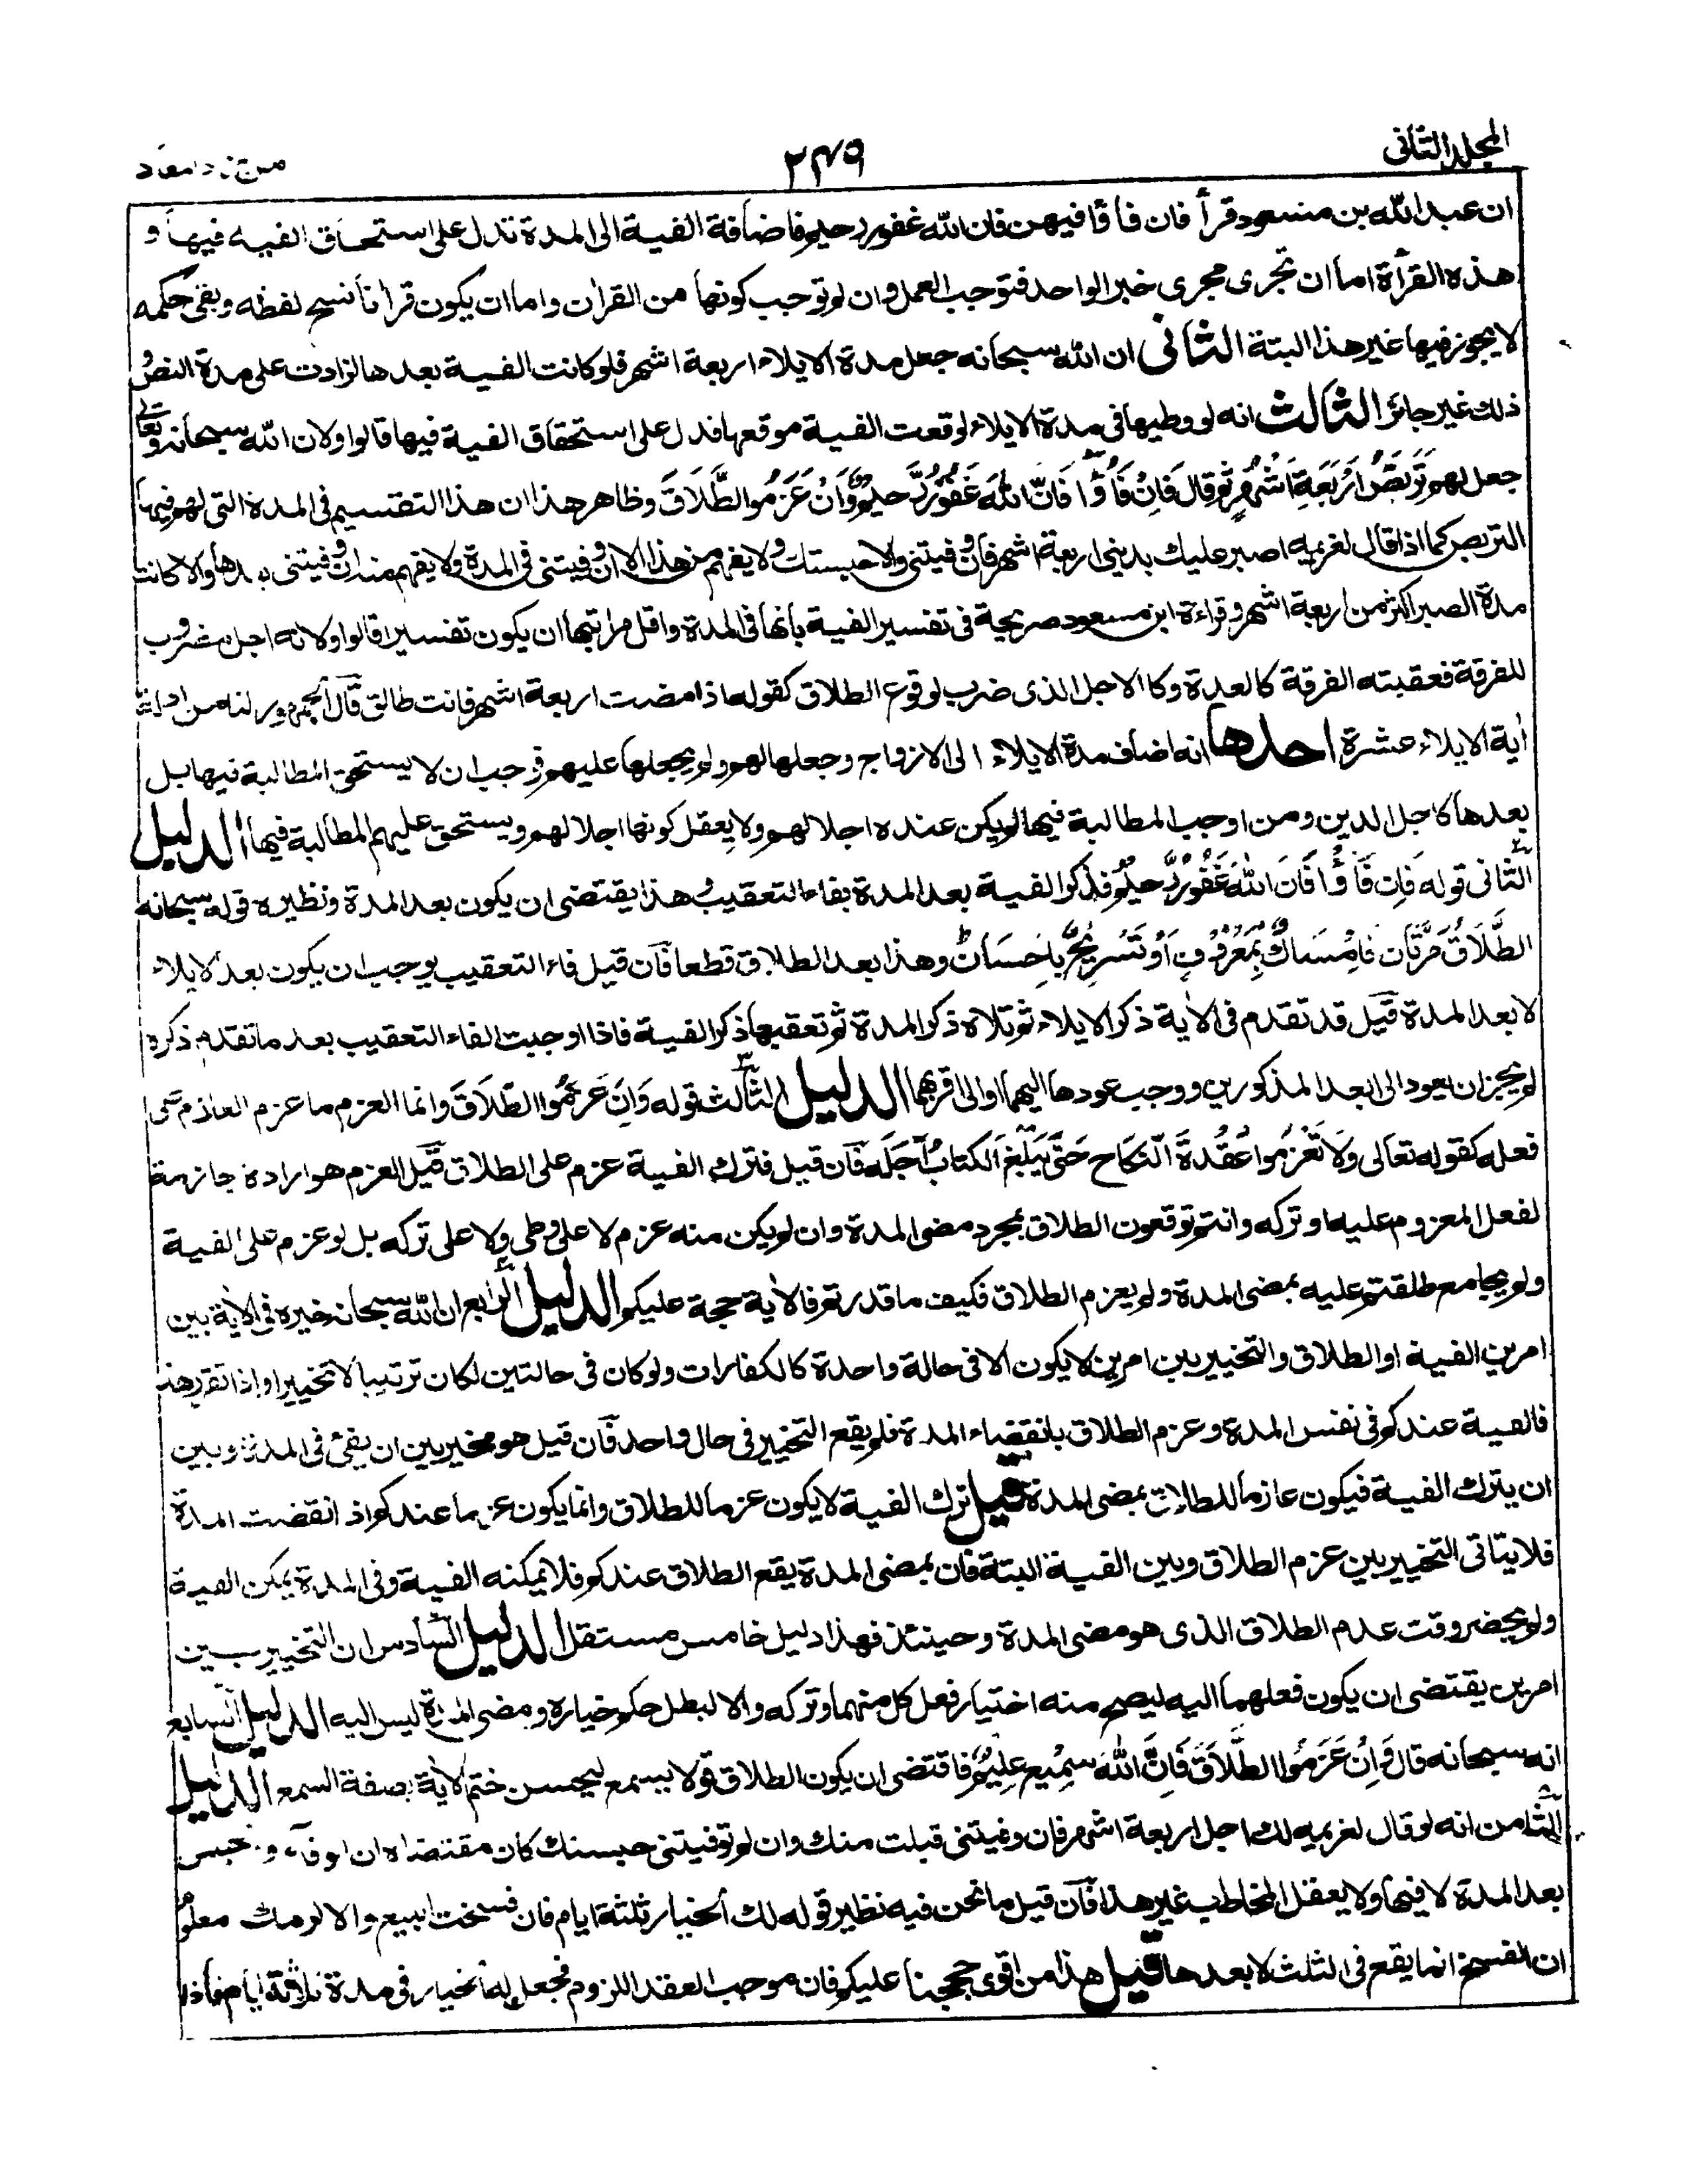 المجلد الثانى
٢٣٩
من زاد المعاد
ان عبد الله بن مسعود قرأ فان فاؤا فيهن فان الله غفور رحيم فاضافة الفيئة الى المدة تدل على استحقاق الفيئة فيها و
هذه القرأة اما ان تجرى مجرى خبر الواحد فتوجب العمل وان لم توجب كونها من القرأن واما ان يكون قرأنا نسخ لفظه وبقى حكمه
لا يجوز فيها غير هذا البتة الثانى ان الله سبحانه جعل مدة الايلاء اربعة اشهر فلو كانت الفيئة بعدها لزادت على مدة النص و
ذلك غير جائز الثالث انه لو وطيها فى مدة الايلاء لوقعت الفيئة موقعها فدل على استحقاق الفيئة فيها قالوا ولان الله سبحانه وتعالى
جعل لهم تَرَبُّصُ اَرْبَعَةِ اَشْهُرٍ ثم قال فَاِنْ فَاؤُا فَاِنَّ اللهَ غَفُوْرٌ رَّحِيْمٌ وَاِنْ عَزَمُوا الطَّلَاقَ وظاهر هذا ان هذا التقسيم فى المدة التى لهم فيها
التربص كما اذا قال لغريمه اصبر عليك بدينى اربعة اشهر فان وفيتنى والا حبستك ولا يفهم من هذا الا ان وفيتنى فى المدة ولا يفهم منه ان وفيتنى بعدها والا كانت
مدة الصبر اكثر من اربعة اشهر وقراءة ابن مسعود صريحة فى تفسير الفيئة بانها فى المدة واقل مراتبها ان يكون تفسيرا قالوا ولانه اجل مضروب
للفرقة فعقبته الفرقة كالعدة وكالاجل الذى ضرب لوقوع الطلاق كقوله اذا مضت اربعة اشهر فانت طالق قال الجمهور لنا من
أية الايلاء عشرة احدها انه اضاف مدة الايلاء الى الازواج وجعلها لهم ولم يجعلها عليهم فوجب ان لا يستحق المطالبة فيها بل
بعدها كاجل الدين ومن اوجب المطالبة فيها لم يكن عنده اجلا لهم ولا يعقل كونها اجلا لهم ويستحق عليهم المطالبة فيها الدليل
الثانى قوله فَاِنْ فَاؤُا فَاِنَّ اللهَ غَفُوْرٌ رَّحِيْمٌ فذكر الفيئة بعد المدة بفاء التعقيب وهذا يقتضى ان يكون بعد المدة ونظيره قوله سبحانه
الطَّلَاقُ مَرَّتَانِ فَاِمْسَاكٌ بِمَعْرُوْفٍ اَوْ تَسْرِيْحٌ بِاِحْسَانٍ وهذا بعد الطلاق قطعا فان قيل فاء التعقيب يوجب ان يكون بعد الايلاء
لا بعد المدة قيل قد تقدم فى الأية ذكر الايلاء ثم تلاه ذكر المدة ثم تعقبها ذكر الفيئة فاذا اوجبت الفاء التعقيب بعد ما تقدم ذكره
لم يجز ان يعود الى ابعد المذكورين ووجب عودها اليهما او الى اقربهما الدليل الثالث قوله وَاِنْ عَزَمُوا الطَّلَاقَ وانما العزم ما عزم العازم على
فعله كقوله تعالى وَلَا تَعْزِمُوا عُقْدَةَ النِّكَاحِ حَتَّى يَبْلُغَ الْكِتَابُ اَجَلَهُ فان قيل فترك الفيئة عزم على الطلاق قيل العزم هو ارادة جازمة
لفعل المعزوم عليه او تركه وانتم توقعون الطلاق بمجرد مضى المدة وان لم يكن منه عزم لا على وطى ولا على تركه بل لو عزم على الفيئة
ولم يجامع طلقتم عليه بمضى المدة ولم يعزم الطلاق فكيف ما قدرتم فالأية حجة عليكم الدليل الرابع ان الله سبحانه خيره فى الأية بين
امرين الفيئة او الطلاق والتخيير بين امرين لا يكون الا فى حالة واحدة كالكفارات ولو كان فى حالتين لكان ترتيبا لا تخييرا واذا تقرر هذا
فالفيئة عندكم فى نفس المدة وعزم الطلاق بانقضاء المدة فلم يقع التخيير فى حال واحد فان قيل هو مخير بين ان يفئ فى المدة وبين
ان يترك الفيئة فيكون عازما للطلاق بمضى المدة قيل ترك الفيئة لا يكون عزما للطلاق وانما يكون عزما عندكم اذا انقضت المدة
فلا يتاتى التخيير بين عزم الطلاق وبين الفيئة البتة فان بمضى المدة يقع الطلاق عندكم فلا يمكنه الفيئة وفى المدة يمكن الفيئة
ولم يحضر وقت عدم الطلاق الذى هو مضى المدة وحينئذ فهذا دليل خامس مستقل الدليل السادس ان التخيير بين
امرين يقتضى ان يكون فعلهما اليه ليصح منه اختيار فعل كل منهما وتركه والا لبطل حكم خياره ومضى المدة ليس اليه الدليل السابع
انه سبحانه قال وَاِنْ عَزَمُوا الطَّلَاقَ فَاِنَّ اللهَ سَمِيْعٌ عَلِيْمٌ فاقتضى ان يكون الطلاق قولا يسمع ليحسن ختم الأية بصفة السمع الدليل
الثامن انه لو قال لغريمه لك اجل اربعة اشهر فان وفيتنى قبلت منك وان لم توفيتنى حبستك كان مقتضاه ان الوفاء و حبس
بعد المدة لا فيها ولا يعقل المخاطب غير هذا فان قيل ما نحن فيه نظير قوله لك الخيار ثلثة ايام فان فسخت البيع والا لزمك معلوم
ان الفسخ انما يقع فى الثلث لا بعدها قيل هذا من اقوى حججنا عليكم فان موجب العقد اللزوم فجعل له الخيار فى مدة ثلاثة ايام فاذا